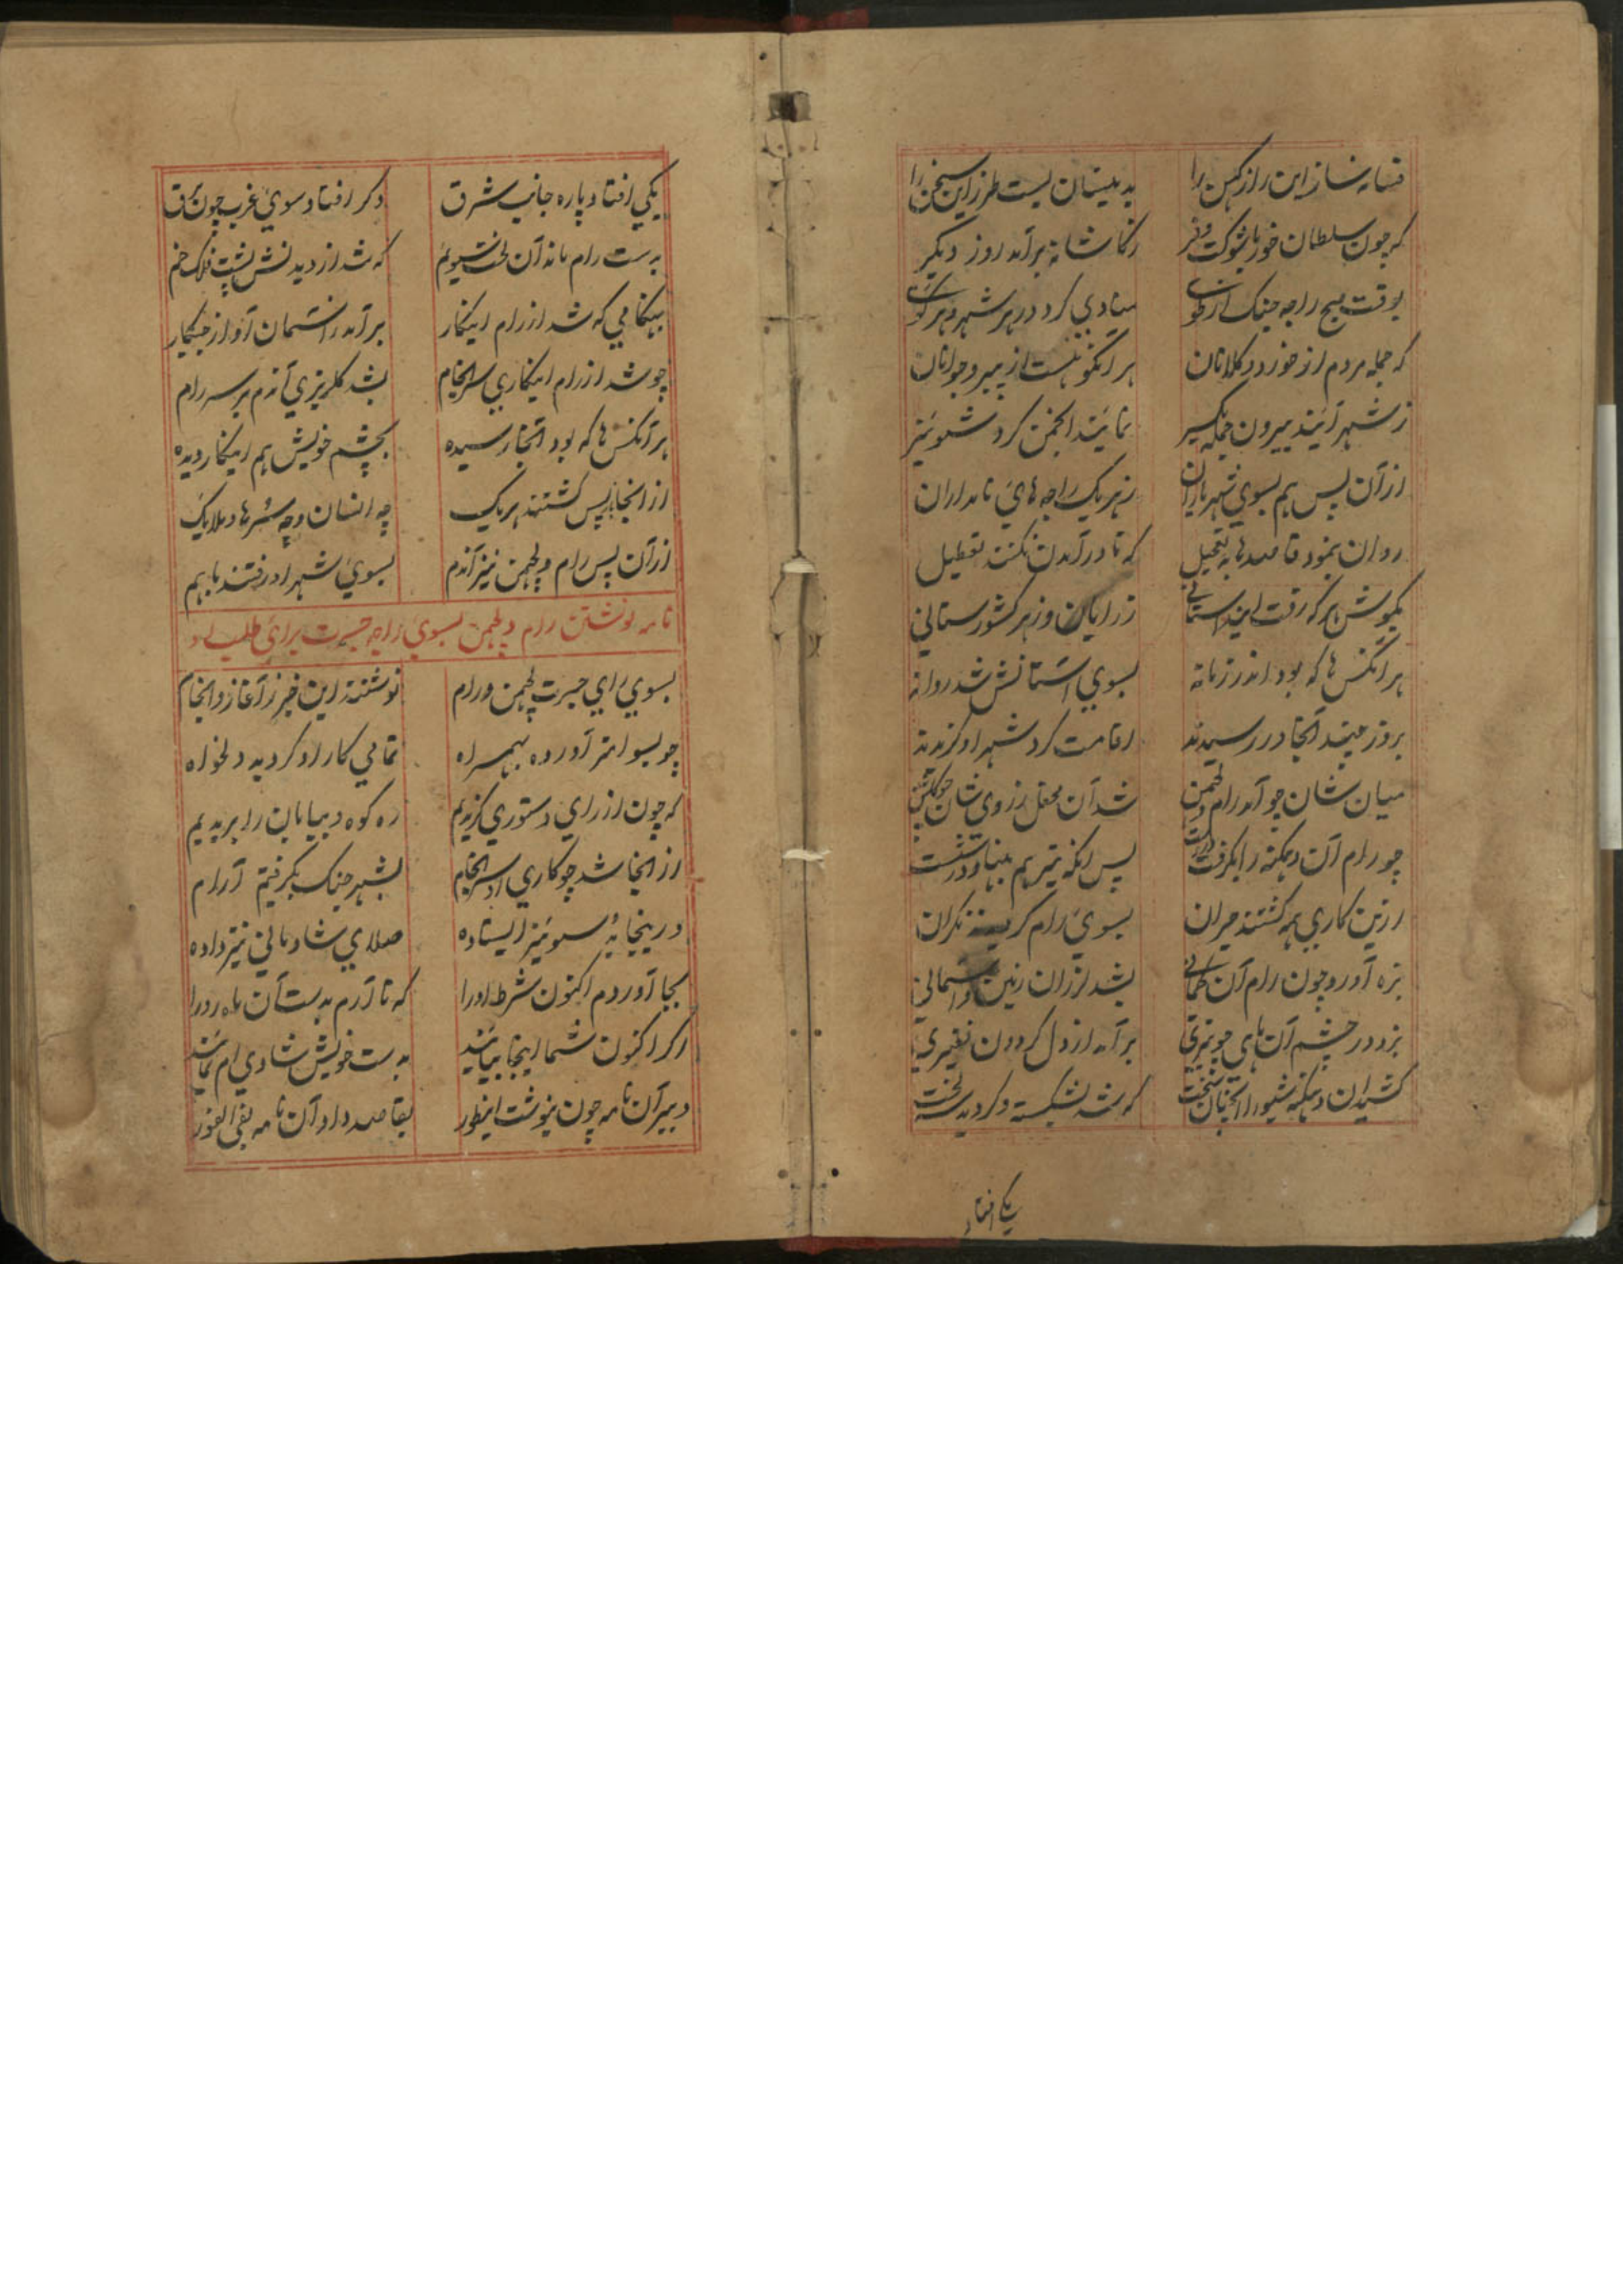 فسانه ساز این راز کهن را بدینسان بست طرز این سخن را
که چون سلطان خور با شوکت و فر ز کاشانه برآمد روز دیگر
بوقت صبح راجه جنک از طرب منادی کرد در هر شهر و هر
که جمله مردم از خورد و کلانان هر آنکو هست از پیر و جوانان
ز شهر آیند بیرون جمله یکسر نمایند انجمن کرد سوئنبر
از آن پس هم بسوی شهریاران ز هر یک راجه‌های نامداران
روان بنمود قاصدها به تعجیل که تا در آمدن نکنند تعطیل
بگوش هر که رفت این داستانی ز رایان و ز هر کشورستانی
هر آنکس‌ها که بود اندر زمانه بسوی آستانش شد روانه
بروز چند آنجا در رسیدند اقامت کرد شهر او گزیدند
میان شان چو آمد رام و لچهمن شد آن محفل ز روی شان چو گلشن
چو رام آن دهنکه را بگرفت پس آنگه تیر هم بنهاد در شست
ازین کاری همه گشتند حیران بسوی رام گردیدند نگران
بزه آورد چون رام آن کمانی بشد لرزان زمین و آسمانی
بزد در چشم آن ماهی چو تیری برآمد از دل گردون نفیری
کشید آن دهنکه شیو را آنچنان سخت که شد بشکسته و گردید سه لخت
یکی افتاد
یکی افتاد پاره جانب شرق دگر افتاد سوی غرب چون برق
بدست رام ماند آن لخت سیوم که شد از دیدنش پشت فلک خم
بهنگامی که شد از رام اینکار برآمد ز آسمان آواز جیکار
چو شد از رام اینکاری سرانجام بشد گلریزی آندم بر سر رام
هر آنکس‌ها که بود آنجا رسیده بچشم خویش هم اینکار دیده
از آنجا باز پس گشتند هر یک چه انسان و چه سرها و ملایک
از آن پس رام و لچهمن نیز آندم بسوی شهر او رفتند با هم
نامه نوشتن رام و لچهمن بسوی راجه جسرت برای طلب او
بسوی رای جسرت لچهمن و رام نوشتند این خبر ز آغاز و انجام
چو بسوامتر آورده بهمراه تمامی کار او گردید دلخواه
که چون از رای دستوری گزیدیم ره کوه و بیابان را بریدیم
از آنجا شد چو کاری او سرانجام بشهر جنک بگرفتیم آرام
در اینجا به سوئنبر ایستاده صلای شادمانی نیز داده
بجا آوردم اکنون شرط او را که تا آرم بدست آن ماه رو را
اگر اکنون شما اینجا بیایند بدست خویش شادی ام نمایند
دبیر آن نامه چون بنوشت اینطور بقاصد داد آن نامه بفی الفور